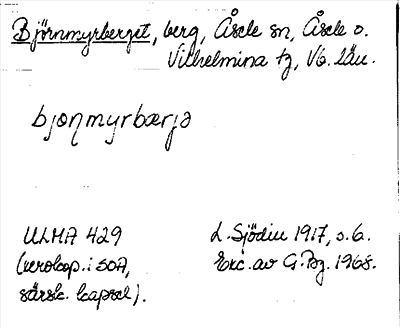 Björnmyrberget, berg, Åsele sn, Åsele o.
Vilhelmina tg, Vb. län.
bjoɳmyrbærjə
ULMA 429
(xerokop. i SOA,
särsk. kapsel).
L. Sjödin 1917, s. 6.
Exc. av G. Bg. 1968.